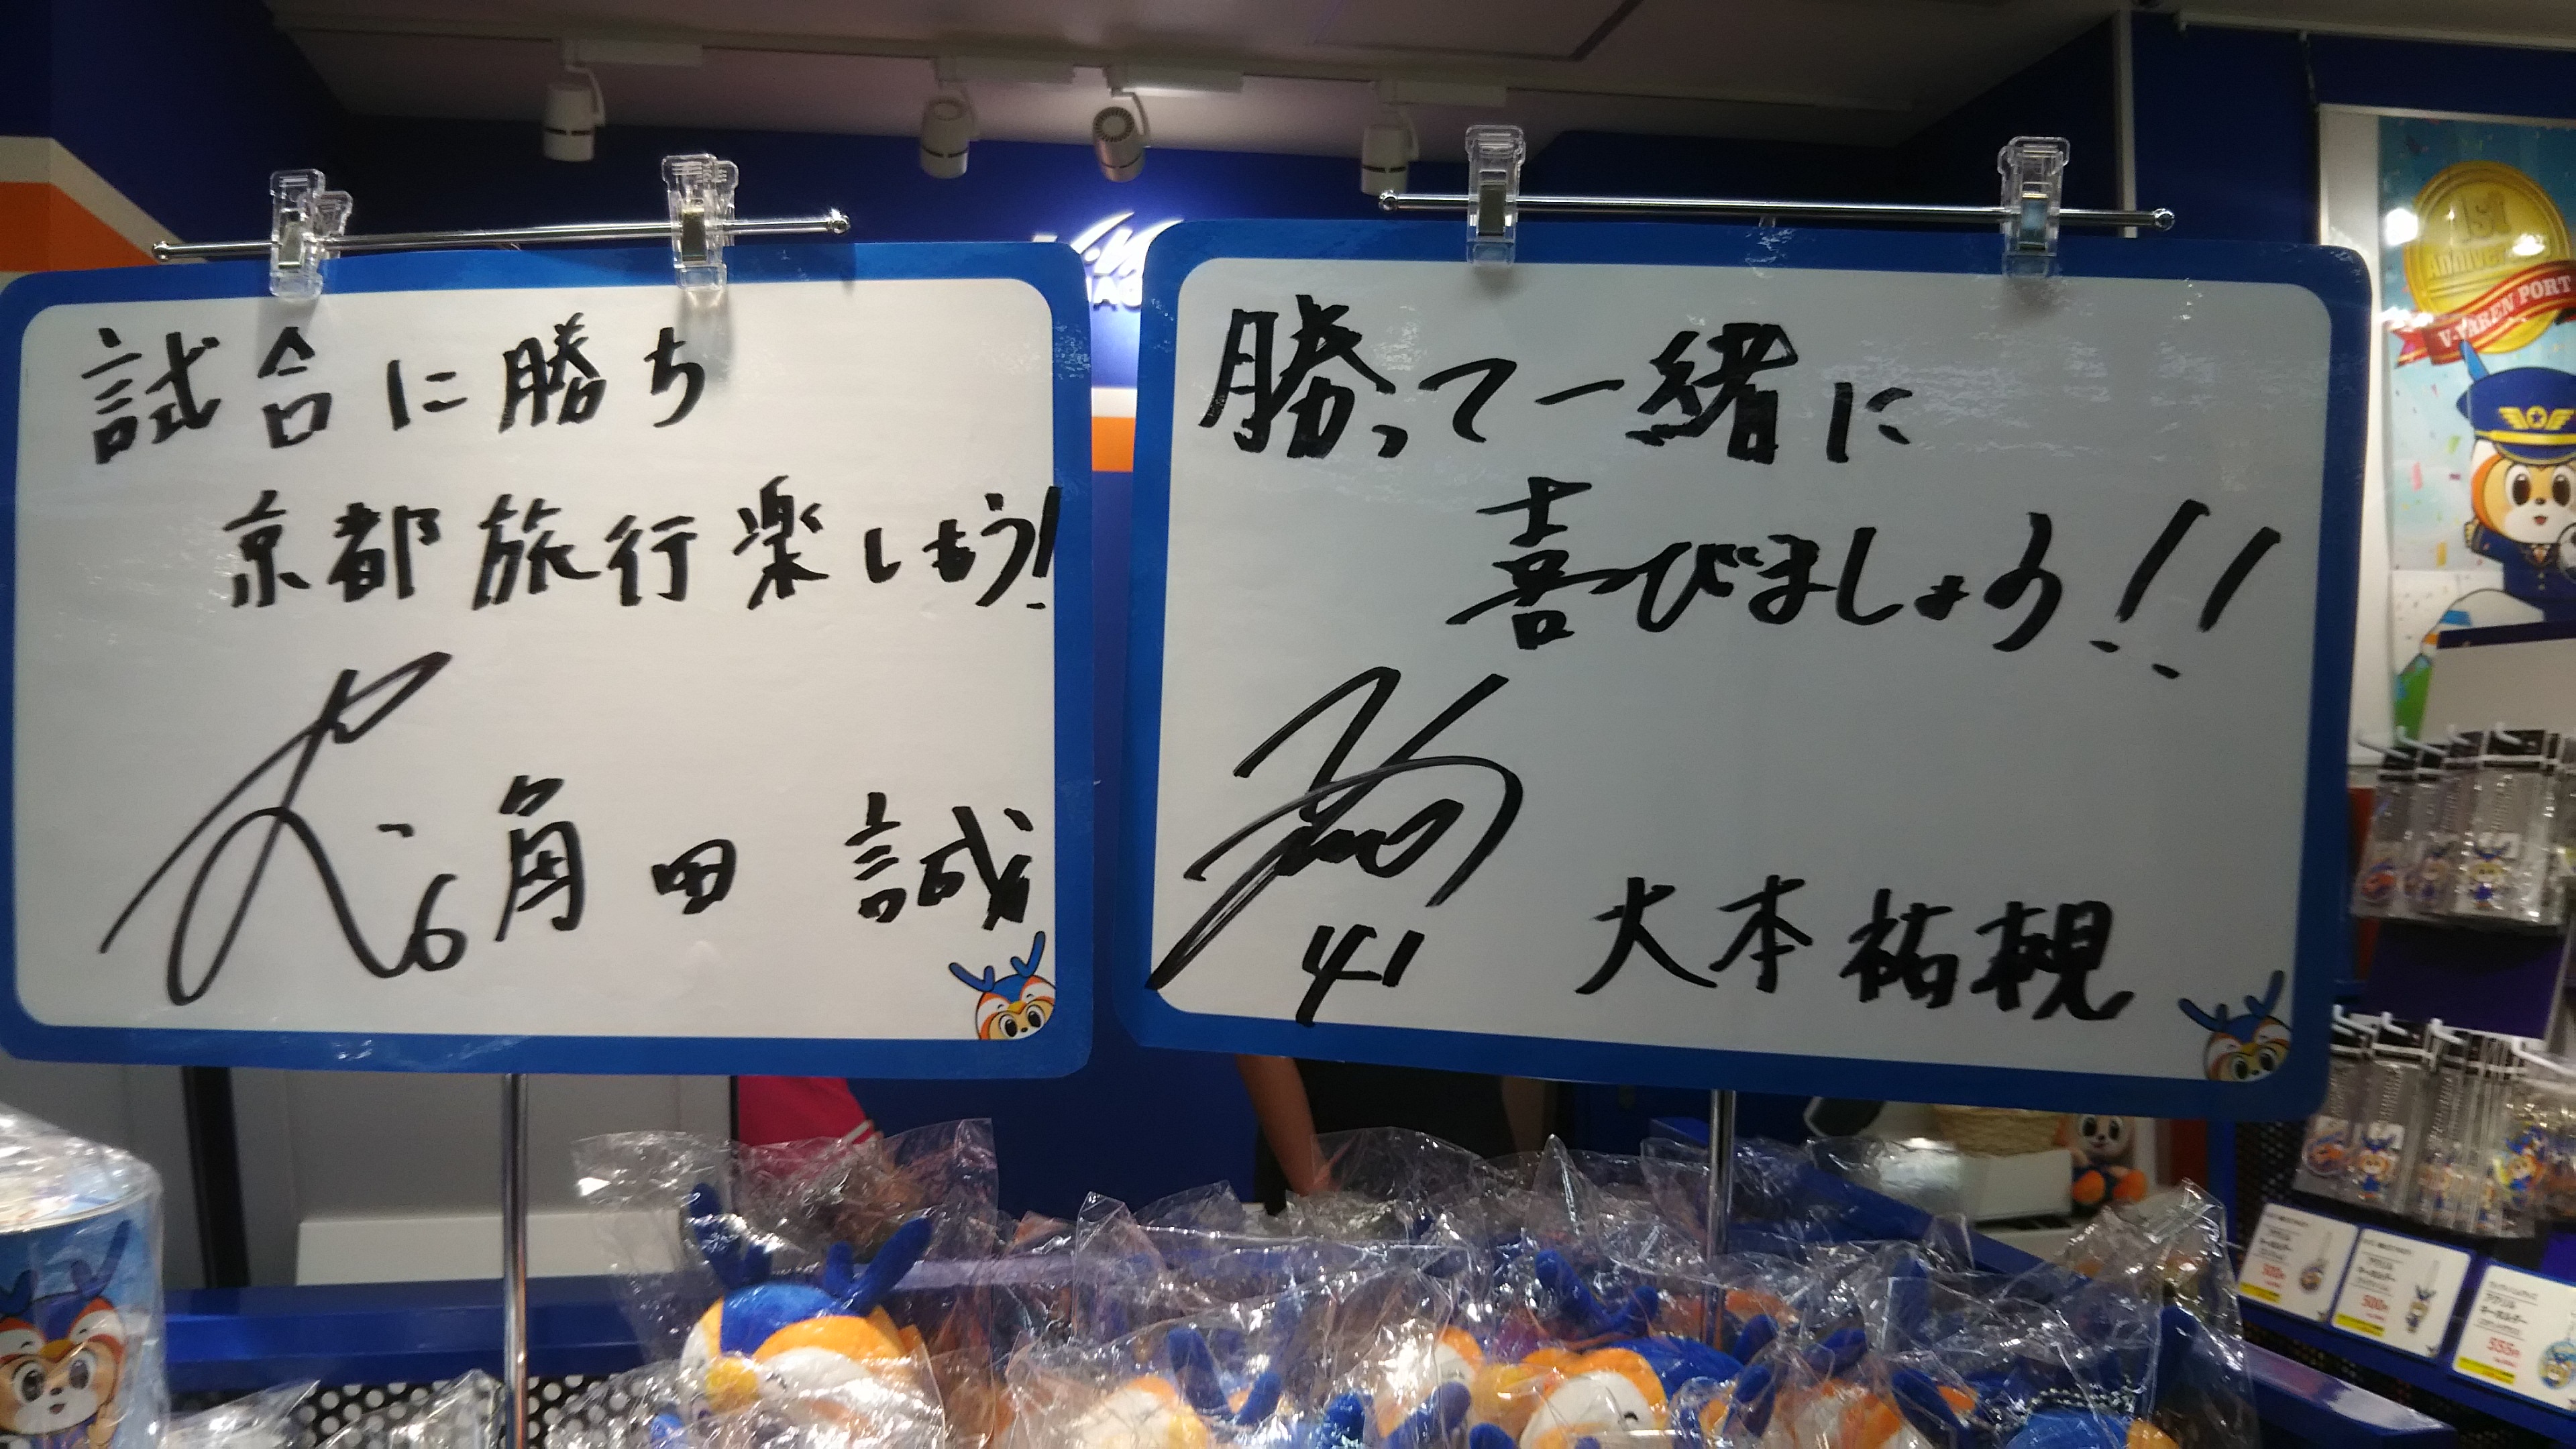 試合に勝ち
京都旅行楽しもう!
6 角田 誠
勝って一緒に
喜びましょう!!
41 大本祐槻
1st
Anniversary
V-VAREN PORT
500円
555円